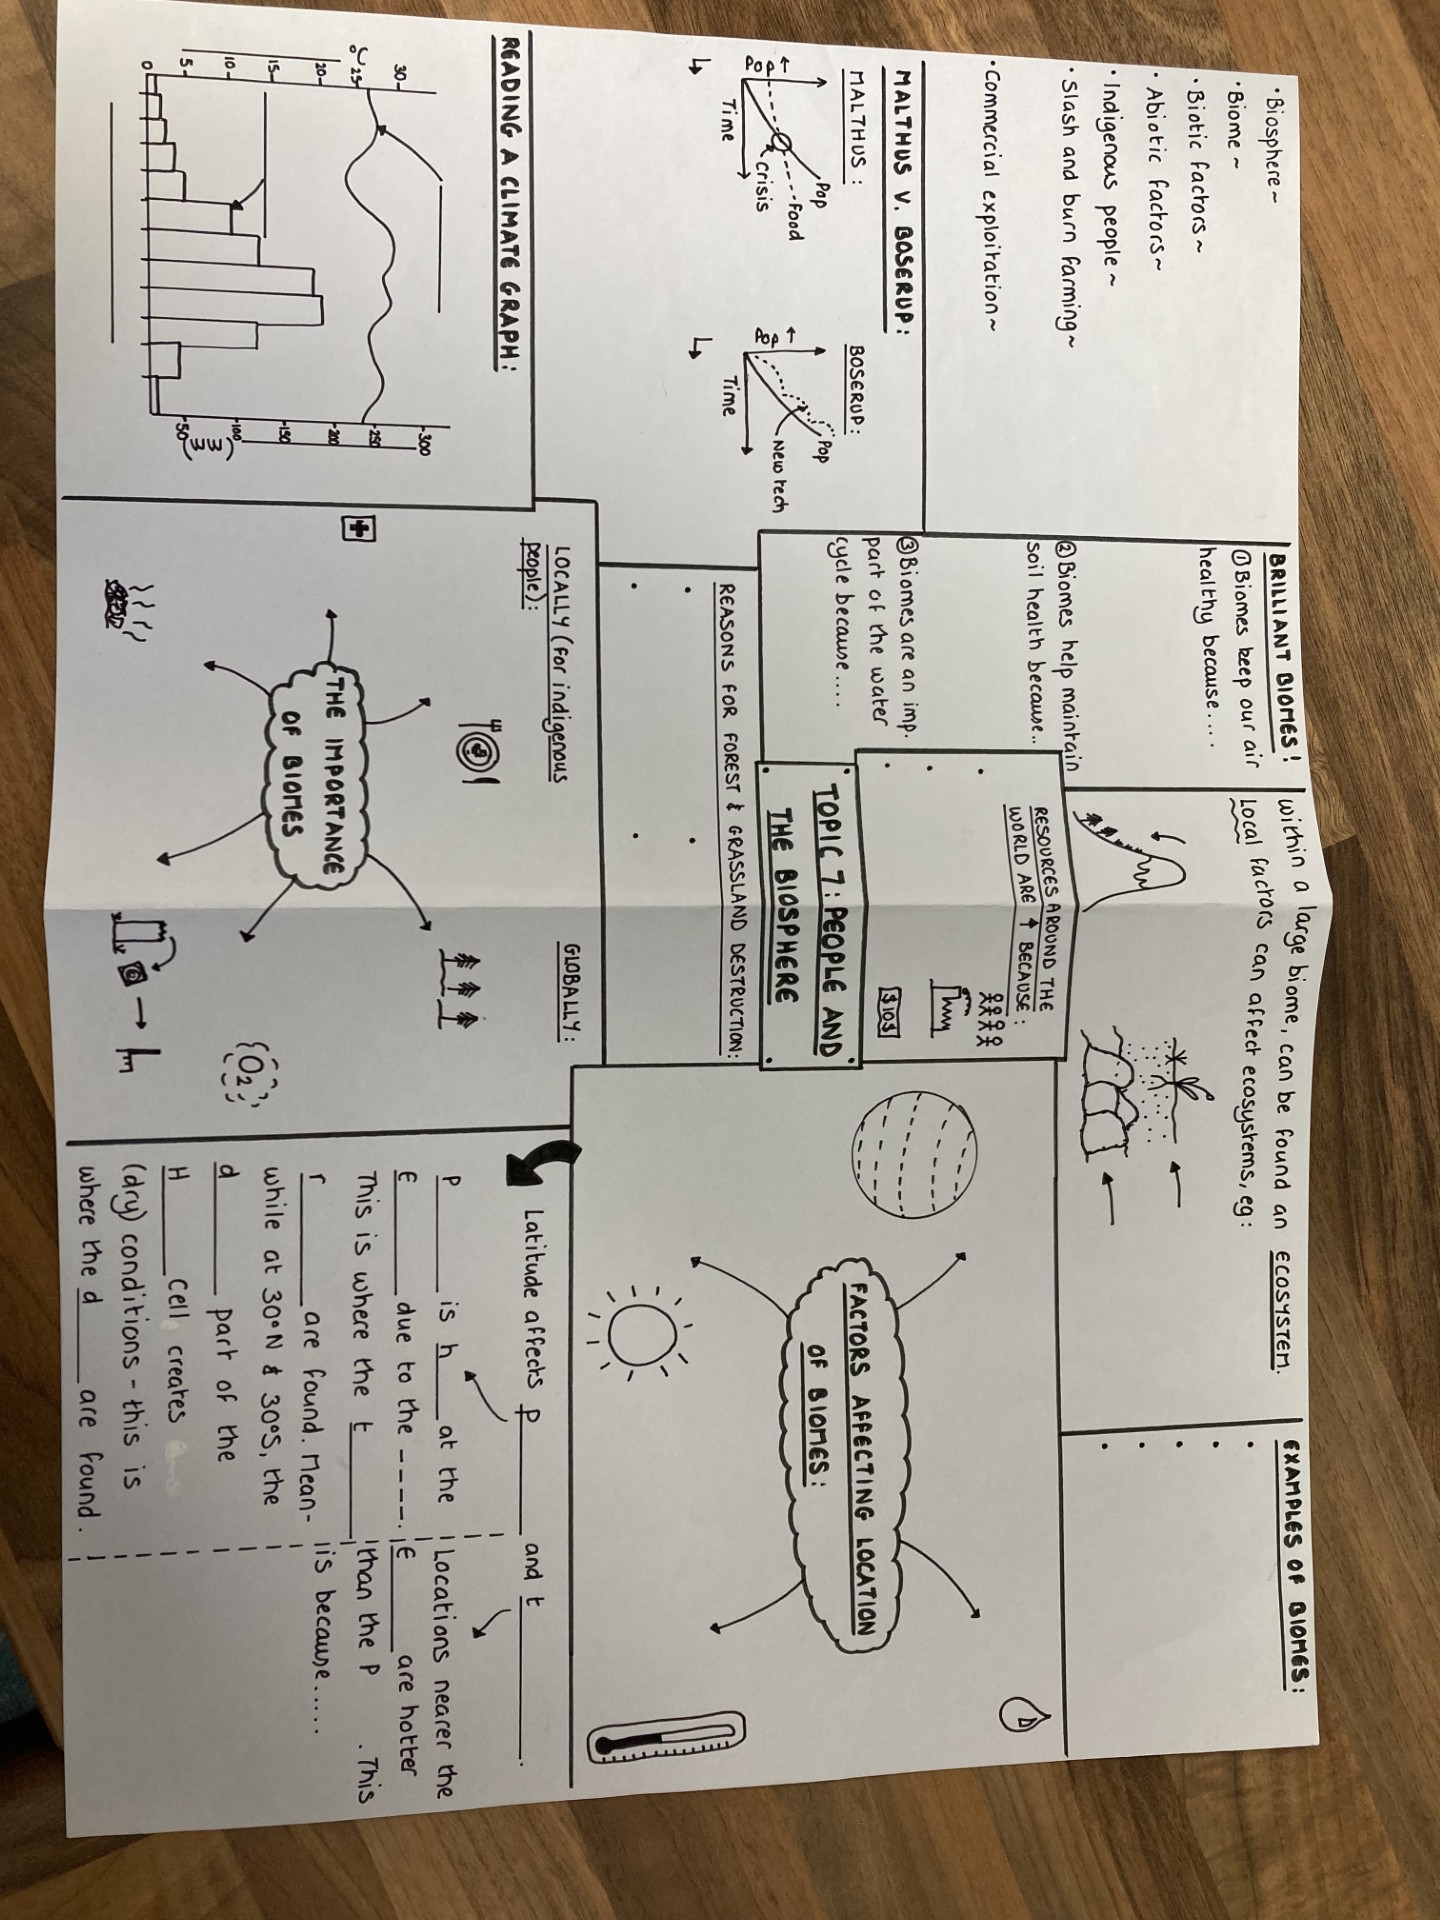 • Biosphere~
• Biome ~
• Biotic factors ~
• Abiotic factors~
• Indigenous people ~
• Slash and burn farming~
• Commercial exploitation~
BRILLIANT BIOMES!
① Biomes keep our air
healthy because....
② Biomes help maintain
soil health because..
③ Biomes are an imp.
part of the water
cycle because....
within a large biome, can be found an ECOSYSTEM.
Local factors can affect ecosystems, eg:
EXAMPLES OF BIOMES:
MALTHUS V. BOSERUP:
MALTHUS:
Pop
Food
crisis
Time
BOSERUP:
Pop
New tech
Time
RESOURCES AROUND THE
WORLD ARE ↑ BECAUSE:
$10$
TOPIC 7: PEOPLE AND
THE BIOSPHERE
REASONS FOR FOREST & GRASSLAND DESTRUCTION:
FACTORS AFFECTING LOCATION
OF BIOMES:
READING A CLIMATE GRAPH:
°C
30
25
20
15
10
5
0
300
250
200
150
100
50
(mm)
LOCALLY (for indigenous
people):
GLOBALLY:
THE IMPORTANCE
OF BIOMES
O₂
Latitude affects p________ and t________.
P________ is h____ at the
E________ due to the ----.
This is where the t________
r________ are found. Mean-
while at 30°N & 30°S, the
d________ part of the
H________ cell creates
(dry) conditions - this is
where the d______ are found.
Locations nearer the
E________ are hotter
than the P . This
is because.....